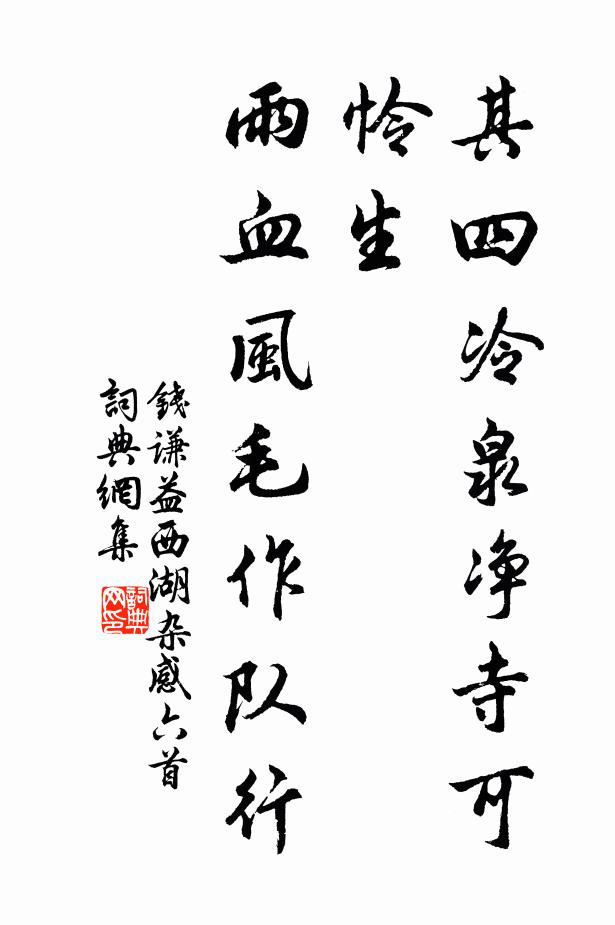 其四冷泉净寺可
怜生
雨血風毛作队行
錢谦益西湖杂感六首
詞典網集
詞典网印